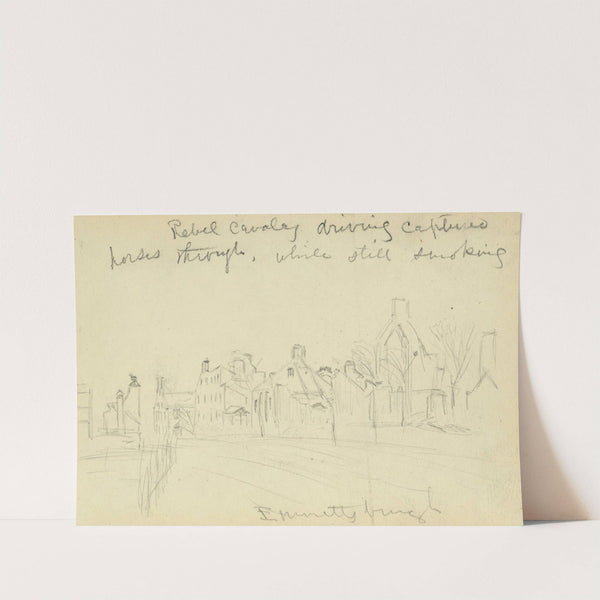 Rebel Cavalry driving captured
horses through, while still smoking
Emmettsburgh